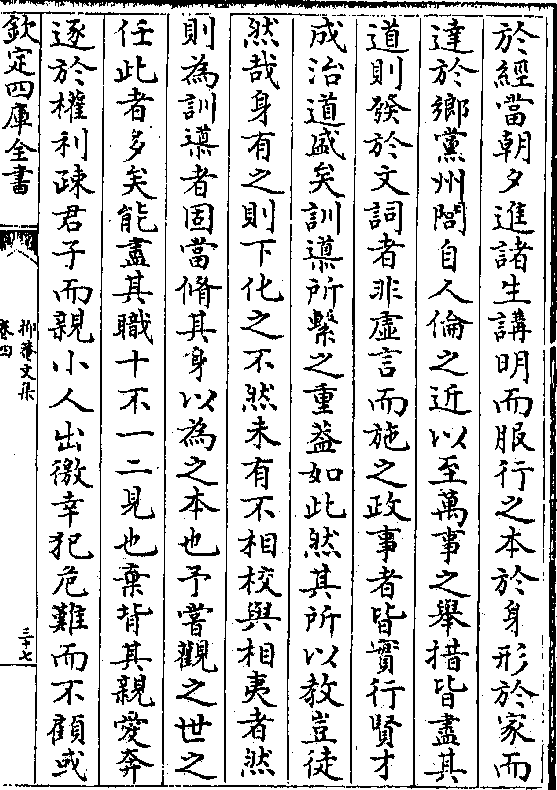 於經當朝夕進諸生講明而服行之本於身形於家而
達於鄉黨州閭自人倫之近以至萬事之舉措皆盡其
道則發於文詞者非虛言而施之政事者皆實行賢才
成治道盛矣訓導所繫之重葢如此然其所以教豈徒
然哉身有之則下化之不然未有不相校與相夷者然
則為訓導者固當脩其身以為之本也予嘗觀之世之
任此者多矣能盡其職十不一二見也棄背其親愛奔
逐於權利疎君子而親小人出徼幸犯危難而不顧或
欽定四庫全書
抑菴文集
卷四
三十七